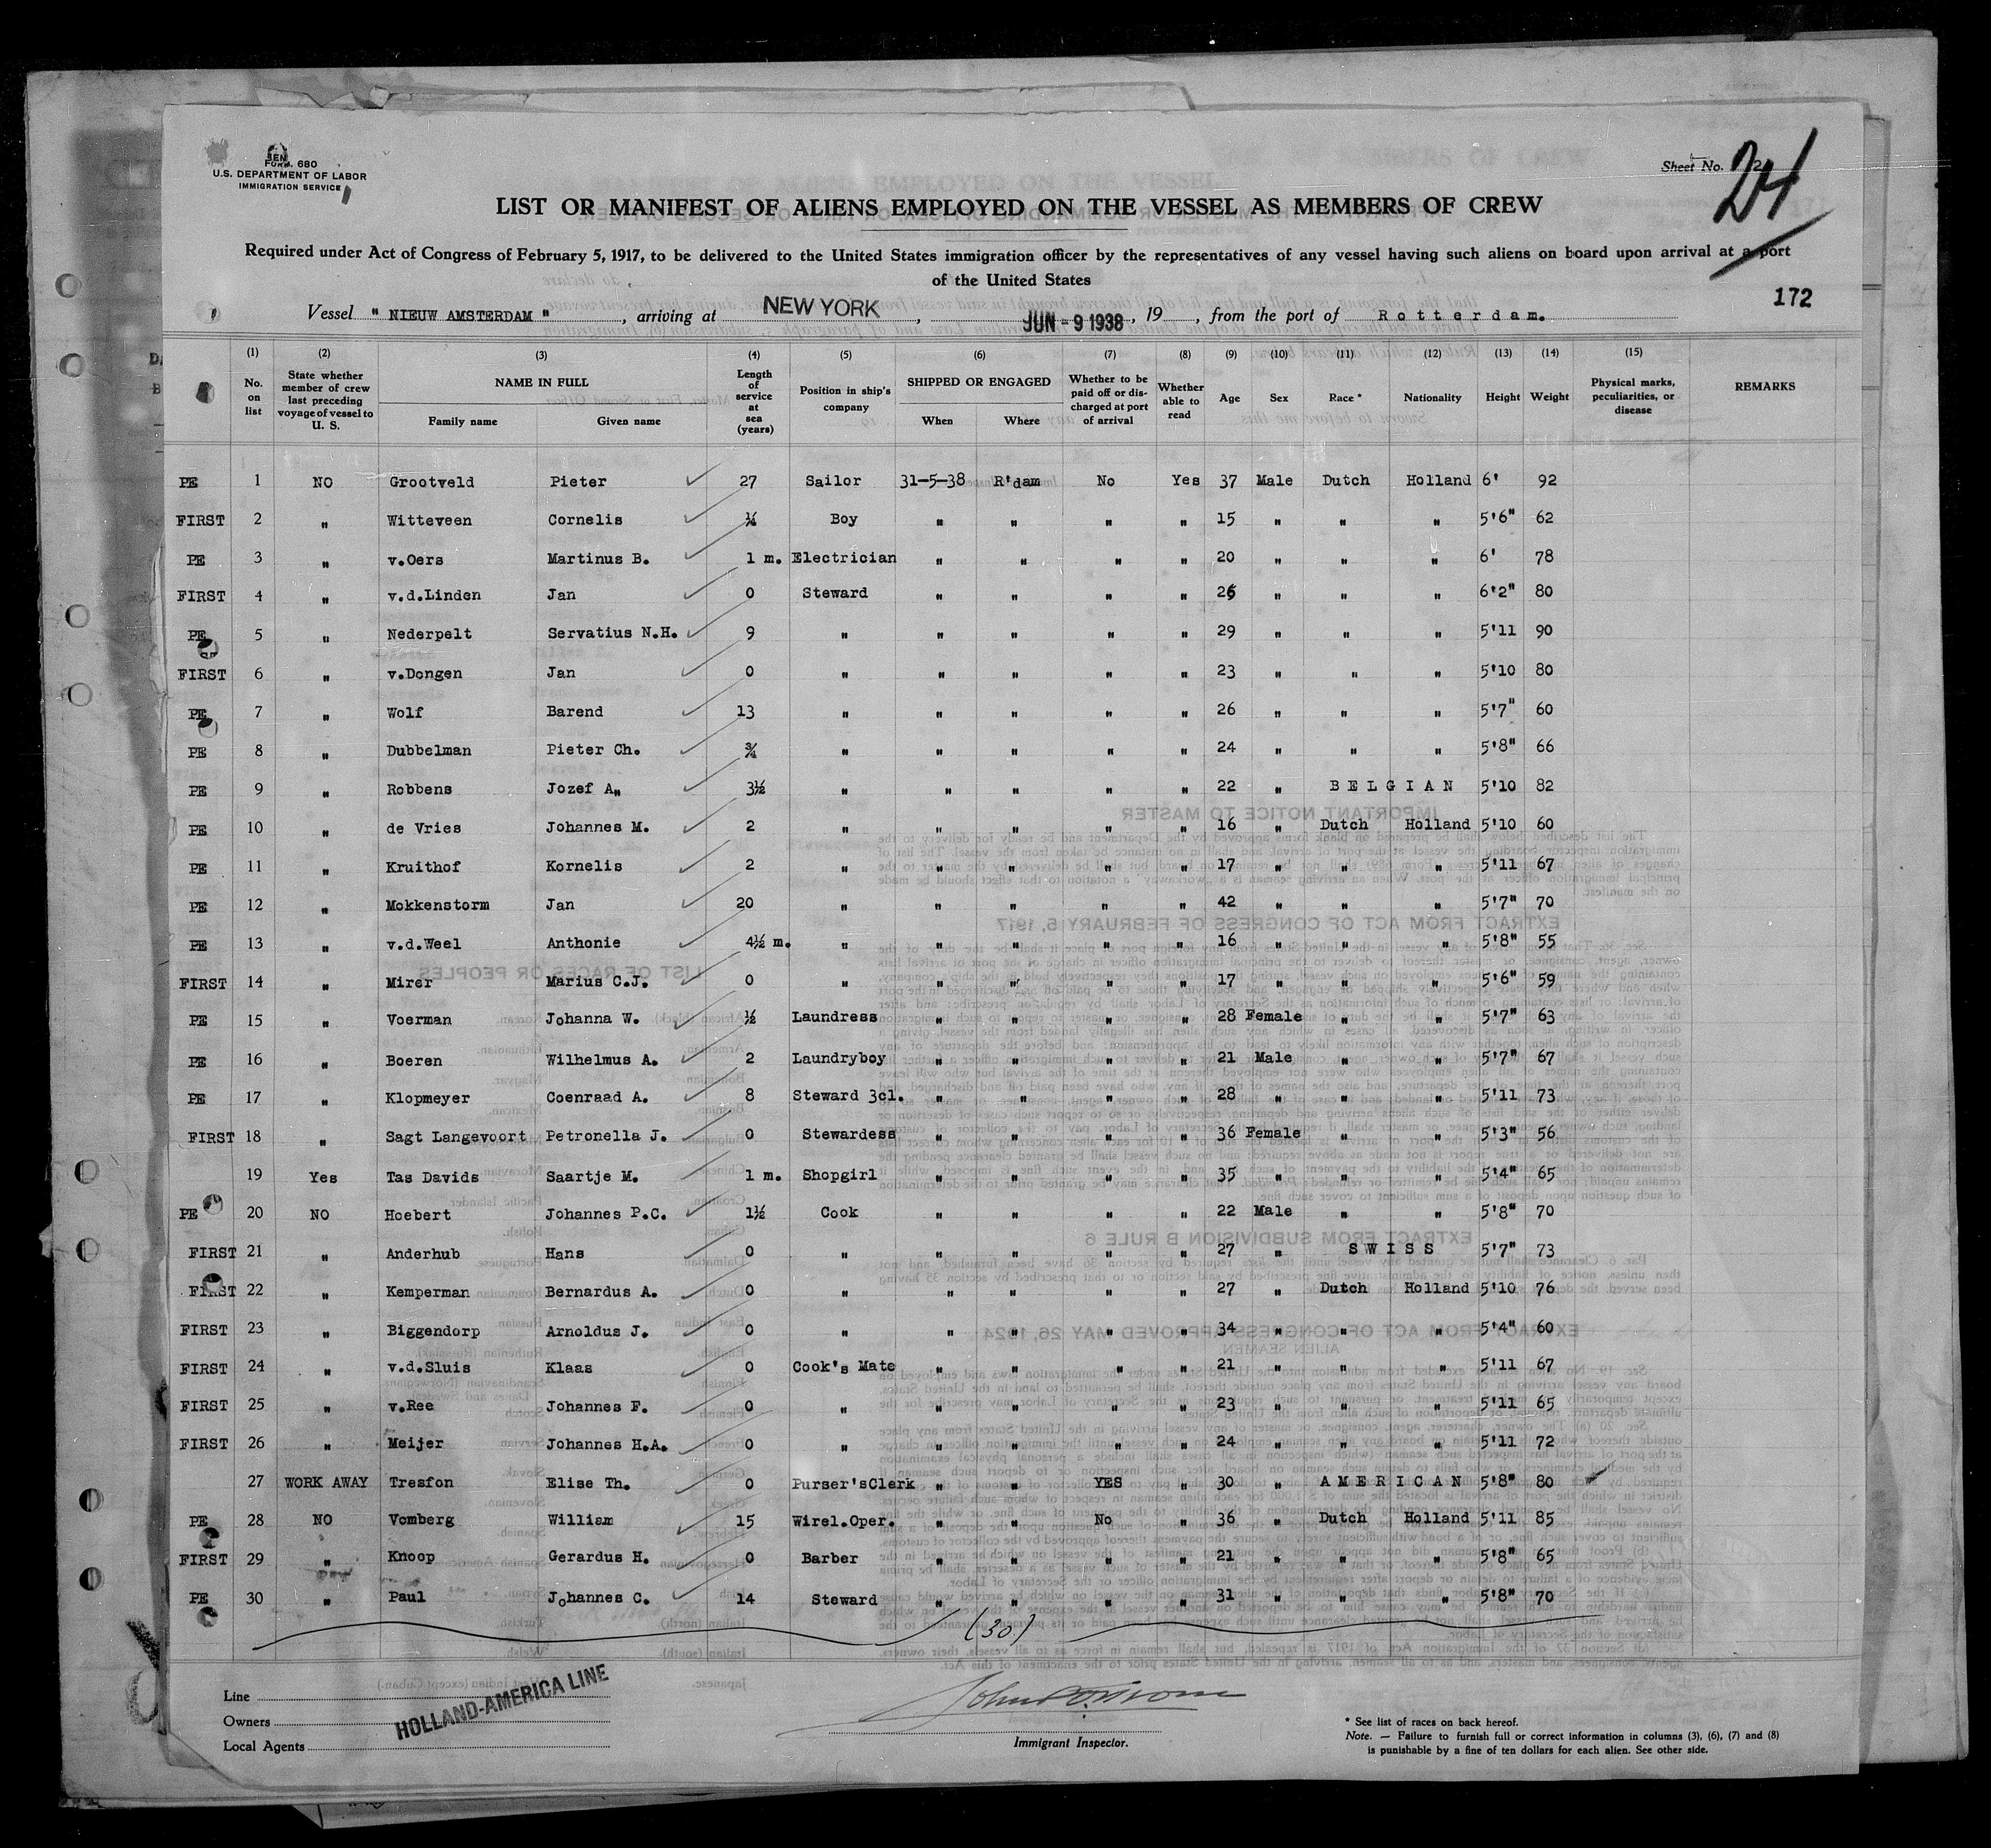 FORM 680
U.S. DEPARTMENT OF LABOR
IMMIGRATION SERVICE
Sheet No. 2
24
LIST OR MANIFEST OF ALIENS EMPLOYED ON THE VESSEL AS MEMBERS OF CREW
Required under Act of Congress of February 5, 1917, to be delivered to the United States immigration officer by the representatives of any vessel having such aliens on board upon arrival at a port
of the United States
172
Vessel " NIEUW AMSTERDAM ", arriving at NEW YORK, JUN - 9 1938, 19, from the port of Rotterdam.
(1) (2) (3) (4) (5) (6) (7) (8) (9) (10) (11) (12) (13) (14) (15)
No. on list State whether member of crew last preceding voyage of vessel to U. S. NAME IN FULL Family name Given name Length of service at sea (years) Position in ship's company SHIPPED OR ENGAGED When Where Whether to be paid off or discharged at port of arrival Whether able to read Age Sex Race * Nationality Height Weight Physical marks, peculiarities, or disease REMARKS
PE 1 NO Grootveld Pieter 27 Sailor 31-5-38 R'dam No Yes 37 Male Dutch Holland 6' 92
FIRST 2 " Witteveen Cornelis ¼ Boy " " " " 15 " " " 5'6" 62
PE 3 " v.Oers Martinus B. 1 m. Electrician " " " " 20 " " " 6' 78
FIRST 4 " v.d.Linden Jan 0 Steward " " " " 26 " " " 6'2" 80
PE 5 " Nederpelt Servatius N.H. 9 " " " " " 29 " " " 5'11 90
FIRST 6 " v.Dongen Jan 0 " " " " " 23 " " " 5'10 80
PE 7 " Wolf Barend 13 " " " " " 26 " " " 5'7" 60
PE 8 " Dubbelman Pieter Ch. ¾ " " " " " 24 " " " 5'8" 66
PE 9 " Robbens Jozef A" 3½ " " " " " 22 " BELGIAN 5'10 82
PE 10 " de Vries Johannes M. 2 " " " " " 16 " Dutch Holland 5'10 60
PE 11 " Kruithof Kornelis 2 " " " " " 17 " " " 5'11 67
PE 12 " Mokkenstorm Jan 20 " " " " " 42 " " " 5'7" 70
PE 13 " v.d.Weel Anthonie 4½ m. " " " " " 16 " " " 5'8" 55
FIRST 14 " Mirer Marius C.J. 0 " " " " " 17 " " " 5'6" 59
PE 15 " Voerman Johanna W. ½ Laundress " " " " 28 Female " " 5'7" 63
PE 16 " Boeren Wilhelmus A. 2 Laundryboy " " " " 21 Male " " 5'7" 67
PE 17 " Klopmeyer Coenraad A. 8 Steward 3cl. " " " " 28 " " " 5'11 73
FIRST 18 " Sagt Langevoort Petronella J. 0 Stewardess " " " " 36 Female " " 5'3" 56
19 Yes Tas Davids Saartje M. 1 m. Shopgirl " " " " 35 " " " 5'4" 65
PE 20 NO Hoebert Johannes P.C. 1½ Cook " " " " 22 Male " " 5'8" 70
FIRST 21 " Anderhub Hans 0 " " " " " 27 " SWISS 5'7" 73
FIRST 22 " Kemperman Bernardus A. 0 " " " " " 27 " Dutch Holland 5'10 76
FIRST 23 " Biggendorp Arnoldus J. 0 " " " " " 34 " " " 5'4" 60
FIRST 24 " v.d.Sluis Klaas 0 Cook's Mate " " " " 21 " " " 5'11 67
FIRST 25 " v.Ree Johannes F. 0 " " " " " 23 " " " 5'11 65
FIRST 26 " Meijer Johannes H.A. 0 " " " " " 24 " " " 5'11 72
27 WORK AWAY Tresfon Elise Th. 0 Purser'sClerk " " YES " 30 " AMERICAN 5'8" 80
PE 28 NO Vomberg William 15 Wirel.Oper. " " No " 36 " Dutch Holland 5'11 85
FIRST 29 " Knoop Gerardus H. 0 Barber " " " " 21 " " " 5'8" 65
PE 30 " Paul Johannes C. 14 Steward " " " " 31 " " " 5'8" 70
(30)
Line
Owners
Local Agents
HOLLAND-AMERICA LINE
Immigrant Inspector.
* See list of races on back hereof.
Note. — Failure to furnish full or correct information in columns (3), (6), (7) and (8)
is punishable by a fine of ten dollars for each alien. See other side.